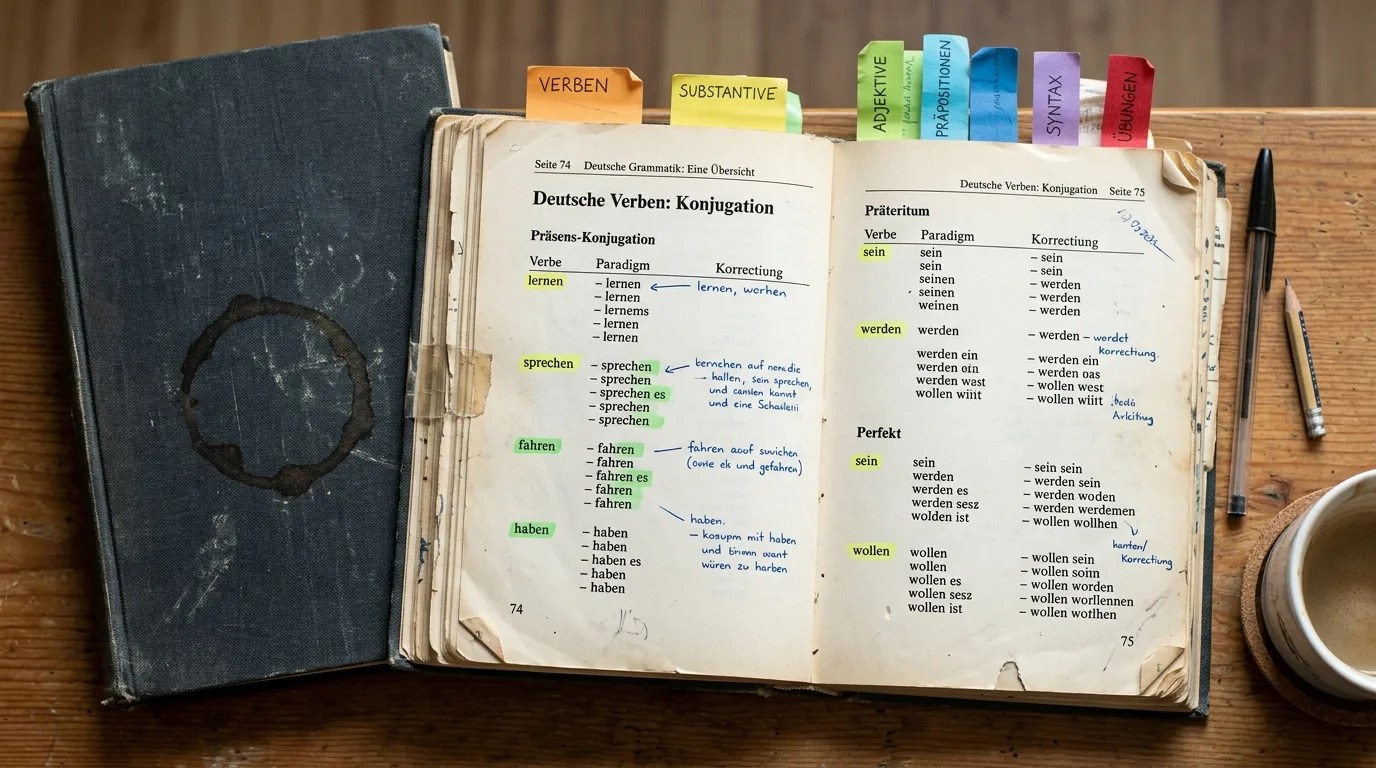 VERBEN
SUBSTANTIVE
ADJEKTIVE
PRÄPOSITIONEN
SYNTAX
ÜBUNGEN
Seite 74 Deutsche Grammatik: Eine Übersicht
Deutsche Verben: Konjugation
Präsens-Konjugation
Verbe Paradigm Korrectiung
lernen – lernen lernen, worhen
– lernen
– lernems
– lernen
– lernen
sprechen – sprechen
– sprechen hallen, sein sprechen,
– sprechen es
– sprechen und eine
– sprechen
fahren – fahren fahren
– fahren und gefahren)
– fahren es
– fahren
– fahren
haben.
haben – haben – mit haben
– haben und want
– haben es würen zu harben
– haben
– haben
74
Deutsche Verben: Konjugation Seite 75
Präteritum
Verbe Paradigm Korrectiung
sein sein – sein
sein – sein
seinen – werden
seinen – werden
weinen – werden
werden werden – werden – werdet
Korrectiung.
werden ein – werden ein
werden – werden oas
werden wast – wollen west
wollen wiiit – wollen wiiit
Perfekt
sein sein – sein sein
werden – werden sein
werden es – werden woden
werden sesz – werden werdemen
wolden ist – wollen wollhen
Korrectiung
wollen wollen – wollen sein
wollen – wollen soinn
wollen es – wollen worden
wollen sesz – wollen worllennen
wollen ist – wollen wotlhen
75